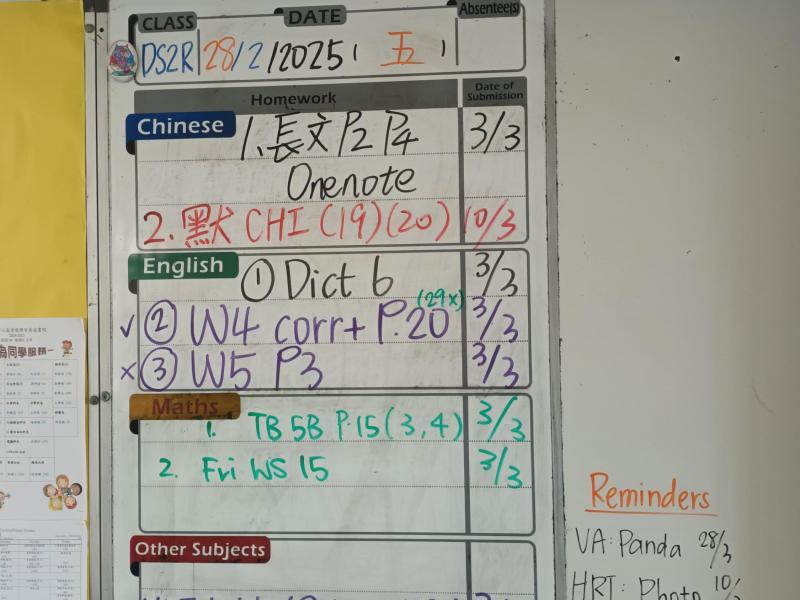 CLASS DATE Absentee(s)
DS2R 28/2/2025 ( 五 )
Homework Date of Submission
Chinese 1. 長文 P2 P4 3/3
Onenote
2. 默 CHI (19)(20) 10/3
English ① Dict 6 3/3
(29x)
✓ ② W4 corr+ P.20 3/3
× ③ W5 P3 3/3
Maths
1. TB 5B P.15 (3,4) 3/3
2. Fri WS 15 3/3
Other Subjects
Reminders
VA: Panda 28/3
HRT: Photo 10/